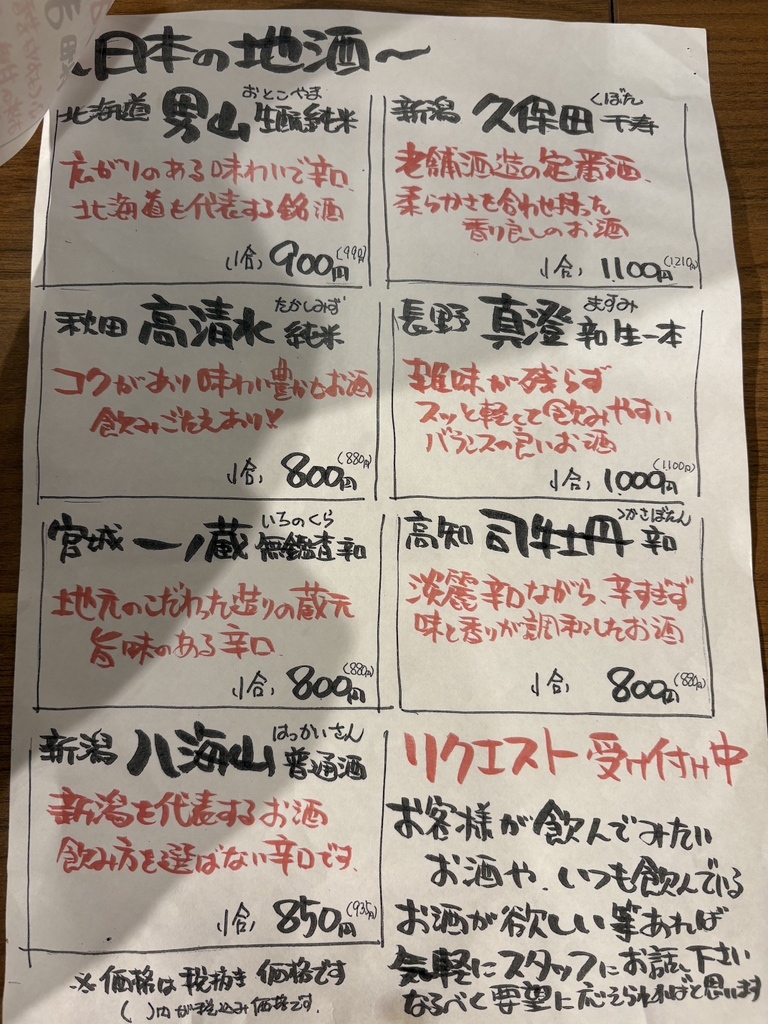 ~日本の地酒~
おとこやま
北海道 男山 生酛純米
広がりのある味わいで辛口
北海道を代表する銘酒
(1合) 900円 (990円)
くぼた
新潟 久保田 千寿
老舗酒造の定番酒
柔らかさを合わせ持った
香り良しのお酒
1合) 1,100円 (1,210円)
たかしみず
秋田 高清水 純米
コクがあり味わい豊かなお酒
飲みごたえあり!!
1合) 800円 (880円)
ますみ
長野 真澄 辛口生一本
雑味が残らず
スッと軽くて飲みやすい
バランスの良いお酒
1合) 1,000円 (1,100円)
いちのくら
宮城 一ノ蔵 無鑑査 辛口
地元のこだわった造りの蔵元
旨味のある辛口
1合) 800円 (880円)
つかさぼたん
高知 司牡丹 辛口
淡麗辛口ながら、辛すぎず
味と香りが調和したお酒
1合) 800円 (880円)
はっかいさん
新潟 八海山 普通酒
新潟を代表するお酒
飲み方を選ばない辛口です
1合) 850円 (935円)
リクエスト受け付け中
お客様が飲んでみたい
お酒や、いつも飲んでいる
お酒が欲しい等あれば
気軽にスタッフにお話し下さい
なるべく要望に応えられればと思います
※価格は税抜き価格です
( )内が税込み価格です.